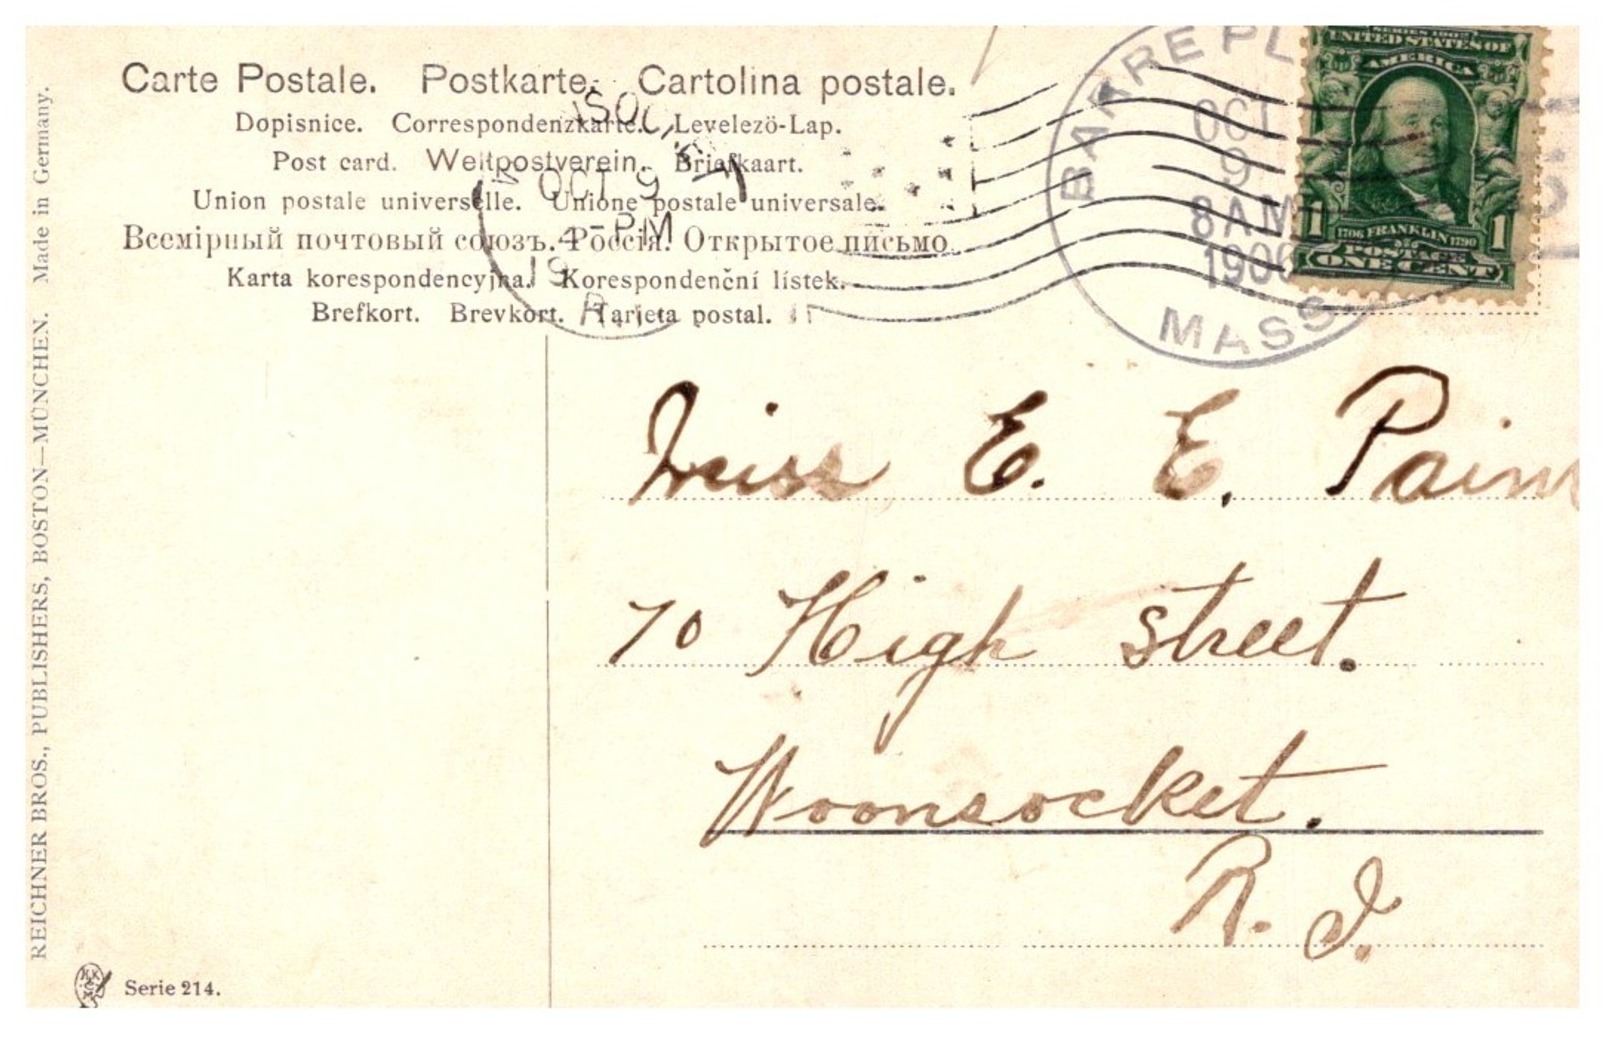 Carte Postale. Postkarte. Cartolina postale.
Dopisnice. Correspondenzkarte. Levelezö-Lap.
Post card. Weltpostverein. Briefkaart.
Union postale universelle. Unione postale universale.
Всемірный почтовый союзъ. Россія. Открытое письмо.
Karta korespondencyjna. Korespondenční lístek.
Brefkort. Brevkort. Tarjeta postal.
OCT 9
4-PM
19
R.I.
BARRE PL
OCT
9
8 AM
1906
MASS
SERIES 1902
UNITED STATES OF
AMERICA
1706 FRANKLIN 1790
POSTAGE
1 1
ONE CENT
Miss E. E. Paine
70 High street.
Woonsocket.
R. I.
REICHNER BROS., PUBLISHERS, BOSTON—MÜNCHEN. Made in Germany.
Serie 214.